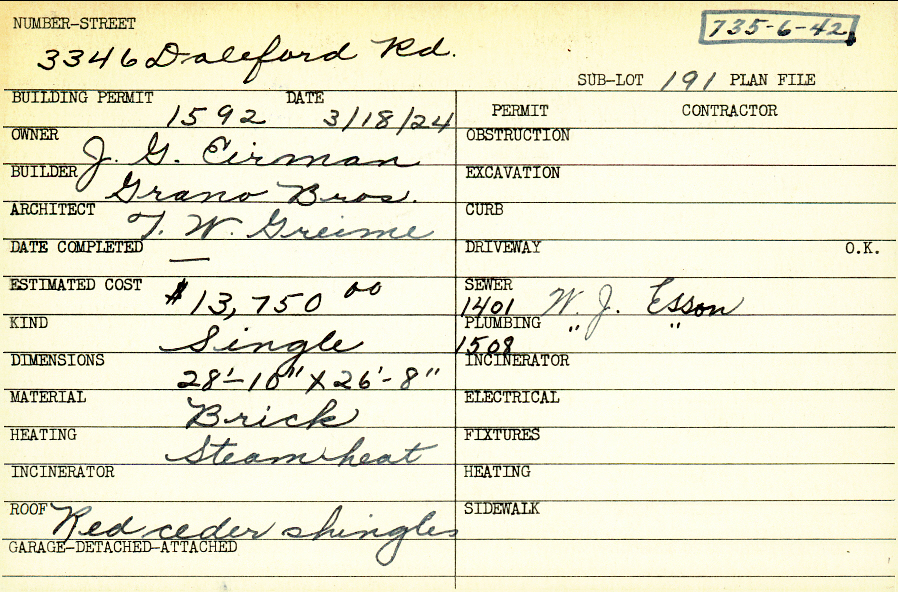 NUMBER-STREET
735-6-42
3346 Daleford Rd.
SUB-LOT 191 PLAN FILE
BUILDING PERMIT 1592 DATE 3/18/24
OWNER J. G. Eirman
BUILDER Grano Bros.
ARCHITECT T. W. Greime
DATE COMPLETED —
ESTIMATED COST $13,750 00
KIND Single
DIMENSIONS 28'-10" X 26'-8"
MATERIAL Brick
HEATING Steam heat
INCINERATOR
ROOF Red ceder shingles
GARAGE-DETACHED-ATTACHED
PERMIT CONTRACTOR
OBSTRUCTION
EXCAVATION
CURB
DRIVEWAY O.K.
SEWER
1401 W. J. Esson
PLUMBING " "
1508
INCINERATOR
ELECTRICAL
FIXTURES
HEATING
SIDEWALK